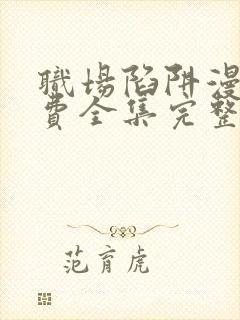 職場陷阱漫
費全集完整
范育虎